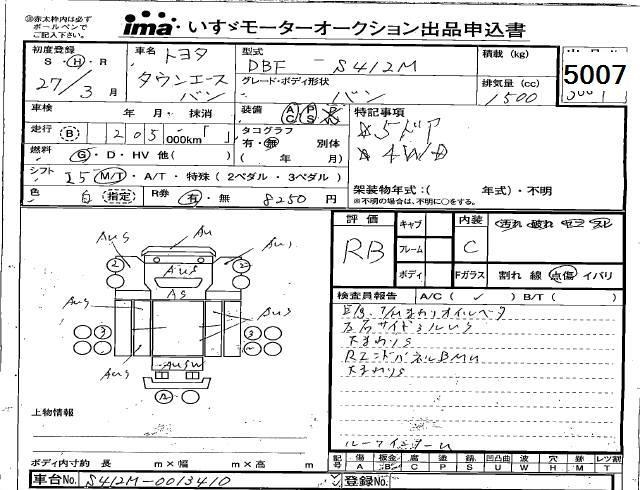 ※赤太枠内は必ず
ボールペンで
ご記入下さい。
ima いすゞモーターオークション出品申込書
初度登録 車名 トヨタ 型式 積載(kg)
S・H・R DBF - S412M
27/3月 タウンエース グレード・ボディ形状 排気量(cc) 5007
バン バン 1500
車検 年 月・抹消 装備 AC PS PW 特記事項
走行 (B) 205,000km タコグラフ ☆5ドア
有・無 別体 ☆4WD
燃料 G・D・HV 他( ) ( 年 月)
シフト I5 M/T・A/T・特殊(2ペダル・3ペダル) 架装物年式:( 年式)・不明
色 白 指定 R券 有・無 8250円 ※不明の場合は、不明に○をする。
評価 キャブ 内装 汚れ 破れ
RB フレーム C
ボディ Fガラス 割れ 線 点傷 イバリ
検査員報告 A/C( ✓ ) B/T( )
E/g、T/Mまわりオイルベタ
左右サイドシルUS
大まわりS
RエンドパネルBMU
大まわりS
AUS
AU
AUS
AS
AUS
AUS
AUS
AUSW
上物情報
ボディ内寸約 長 m×幅 m×高 m
記号 傷A 板金B 腐C 塗P 錆S 凹凸曲U 波W 穴H 痕M レツ割T
車台No. S412M-0013410 登録No.